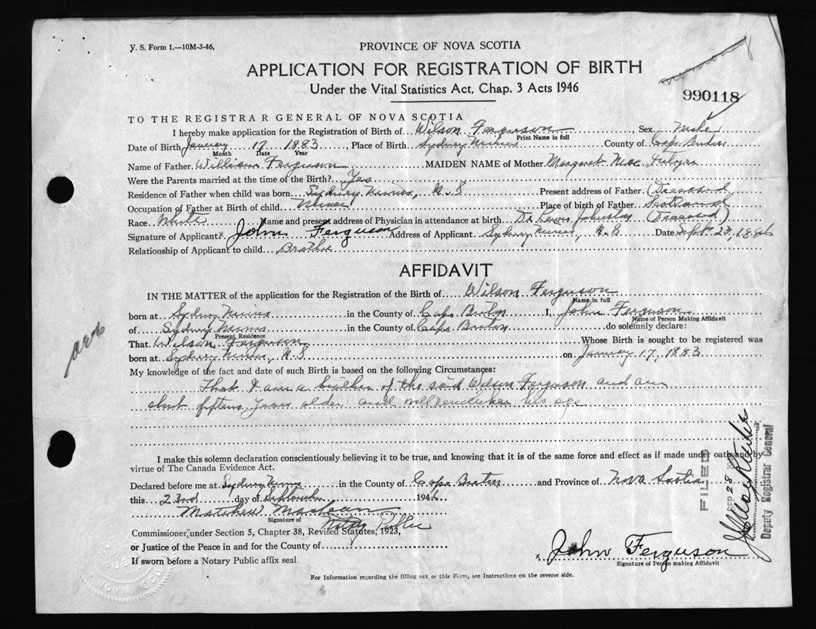 V. S. Form 1.—10M-3-46,
PROVINCE OF NOVA SCOTIA
APPLICATION FOR REGISTRATION OF BIRTH
Under the Vital Statistics Act, Chap. 3 Acts 1946
990118
TO THE REGISTRAR GENERAL OF NOVA SCOTIA
I hereby make application for the Registration of Birth of Wilson Ferguson Sex Male
Print Name in full
Date of Birth January 17 1883 Place of Birth Sydney Mines County of Cape Breton
Month Date Year
Name of Father William Ferguson MAIDEN NAME of Mother Margaret Mac
Were the Parents married at the time of the Birth? Yes
Residence of Father when child was born Sydney Mines, N.S Present address of Father (Deceased)
Occupation of Father at Birth of child Miner Place of birth of Father Scotland
Race White Name and present address of Physician in attendance at birth Dr Lewis Johnston (Deceased)
Signature of Applicant x John Ferguson Address of Applicant Sydney Mines, N.S Date Sept 23, 
Relationship of Applicant to child Brother
AFFIDAVIT
IN THE MATTER of the application for the Registration of the Birth of Wilson Ferguson
Name in full
born at Sydney Mines in the County of Cape Breton I, John Ferguson
Name of Person Making Affidavit
of Sydney Mines in the County of Cape Breton do solemnly declare:
Present Residence
That Wilson Ferguson Whose Birth is sought to be registered was
born at Sydney Mines, N.S on January 17, 1883
My knowledge of the fact and date of such Birth is based on the following Circumstances:
That I am a brother of the said Wilson Ferguson and am
about fifteen years older and well remember his age
I make this solemn declaration conscientiously believing it to be true, and knowing that it is of the same force and effect as if made under oath and by
virtue of The Canada Evidence Act.
Declared before me at Sydney Mines in the County of Cape Breton and Province of Nova Scotia
this 23rd day of September 1946
Matthew MacLean
Signature of
Notary Public
Commissioner, under Section 5, Chapter 38, Revised Statutes, 1923,
or Justice of the Peace in and for the County of
If sworn before a Notary Public affix seal
x John Ferguson
Signature of Person making Affidavit
For Information regarding the filling out of this Form, see Instructions on the reverse side.
FILED
SEP 28
Deputy Registrar General